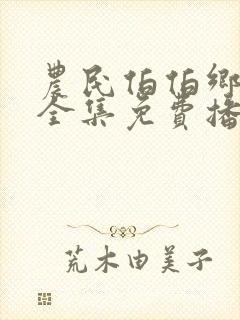 農民伯伯鄉
全集免費播
荒木由美子